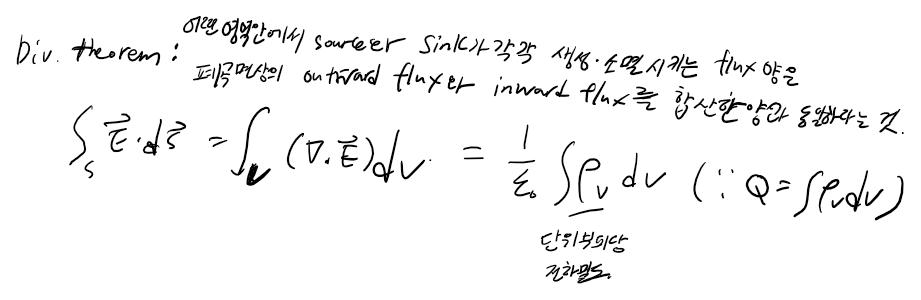 Div. theorem : 어떤 영역안에서 source와 Sink가 각각 생성·소멸시키는 flux 양은
폐곡면상의 outward flux와 inward flux를 합산한 양과 동일하다는 것.
∫ₛ E⃗·ds⃗ = ∫ᵥ (∇·E⃗)dv = 1/ε₀ ∫ρᵥ dv (∵ Q = ∫ρᵥdv)
단위부피당
전하밀도.